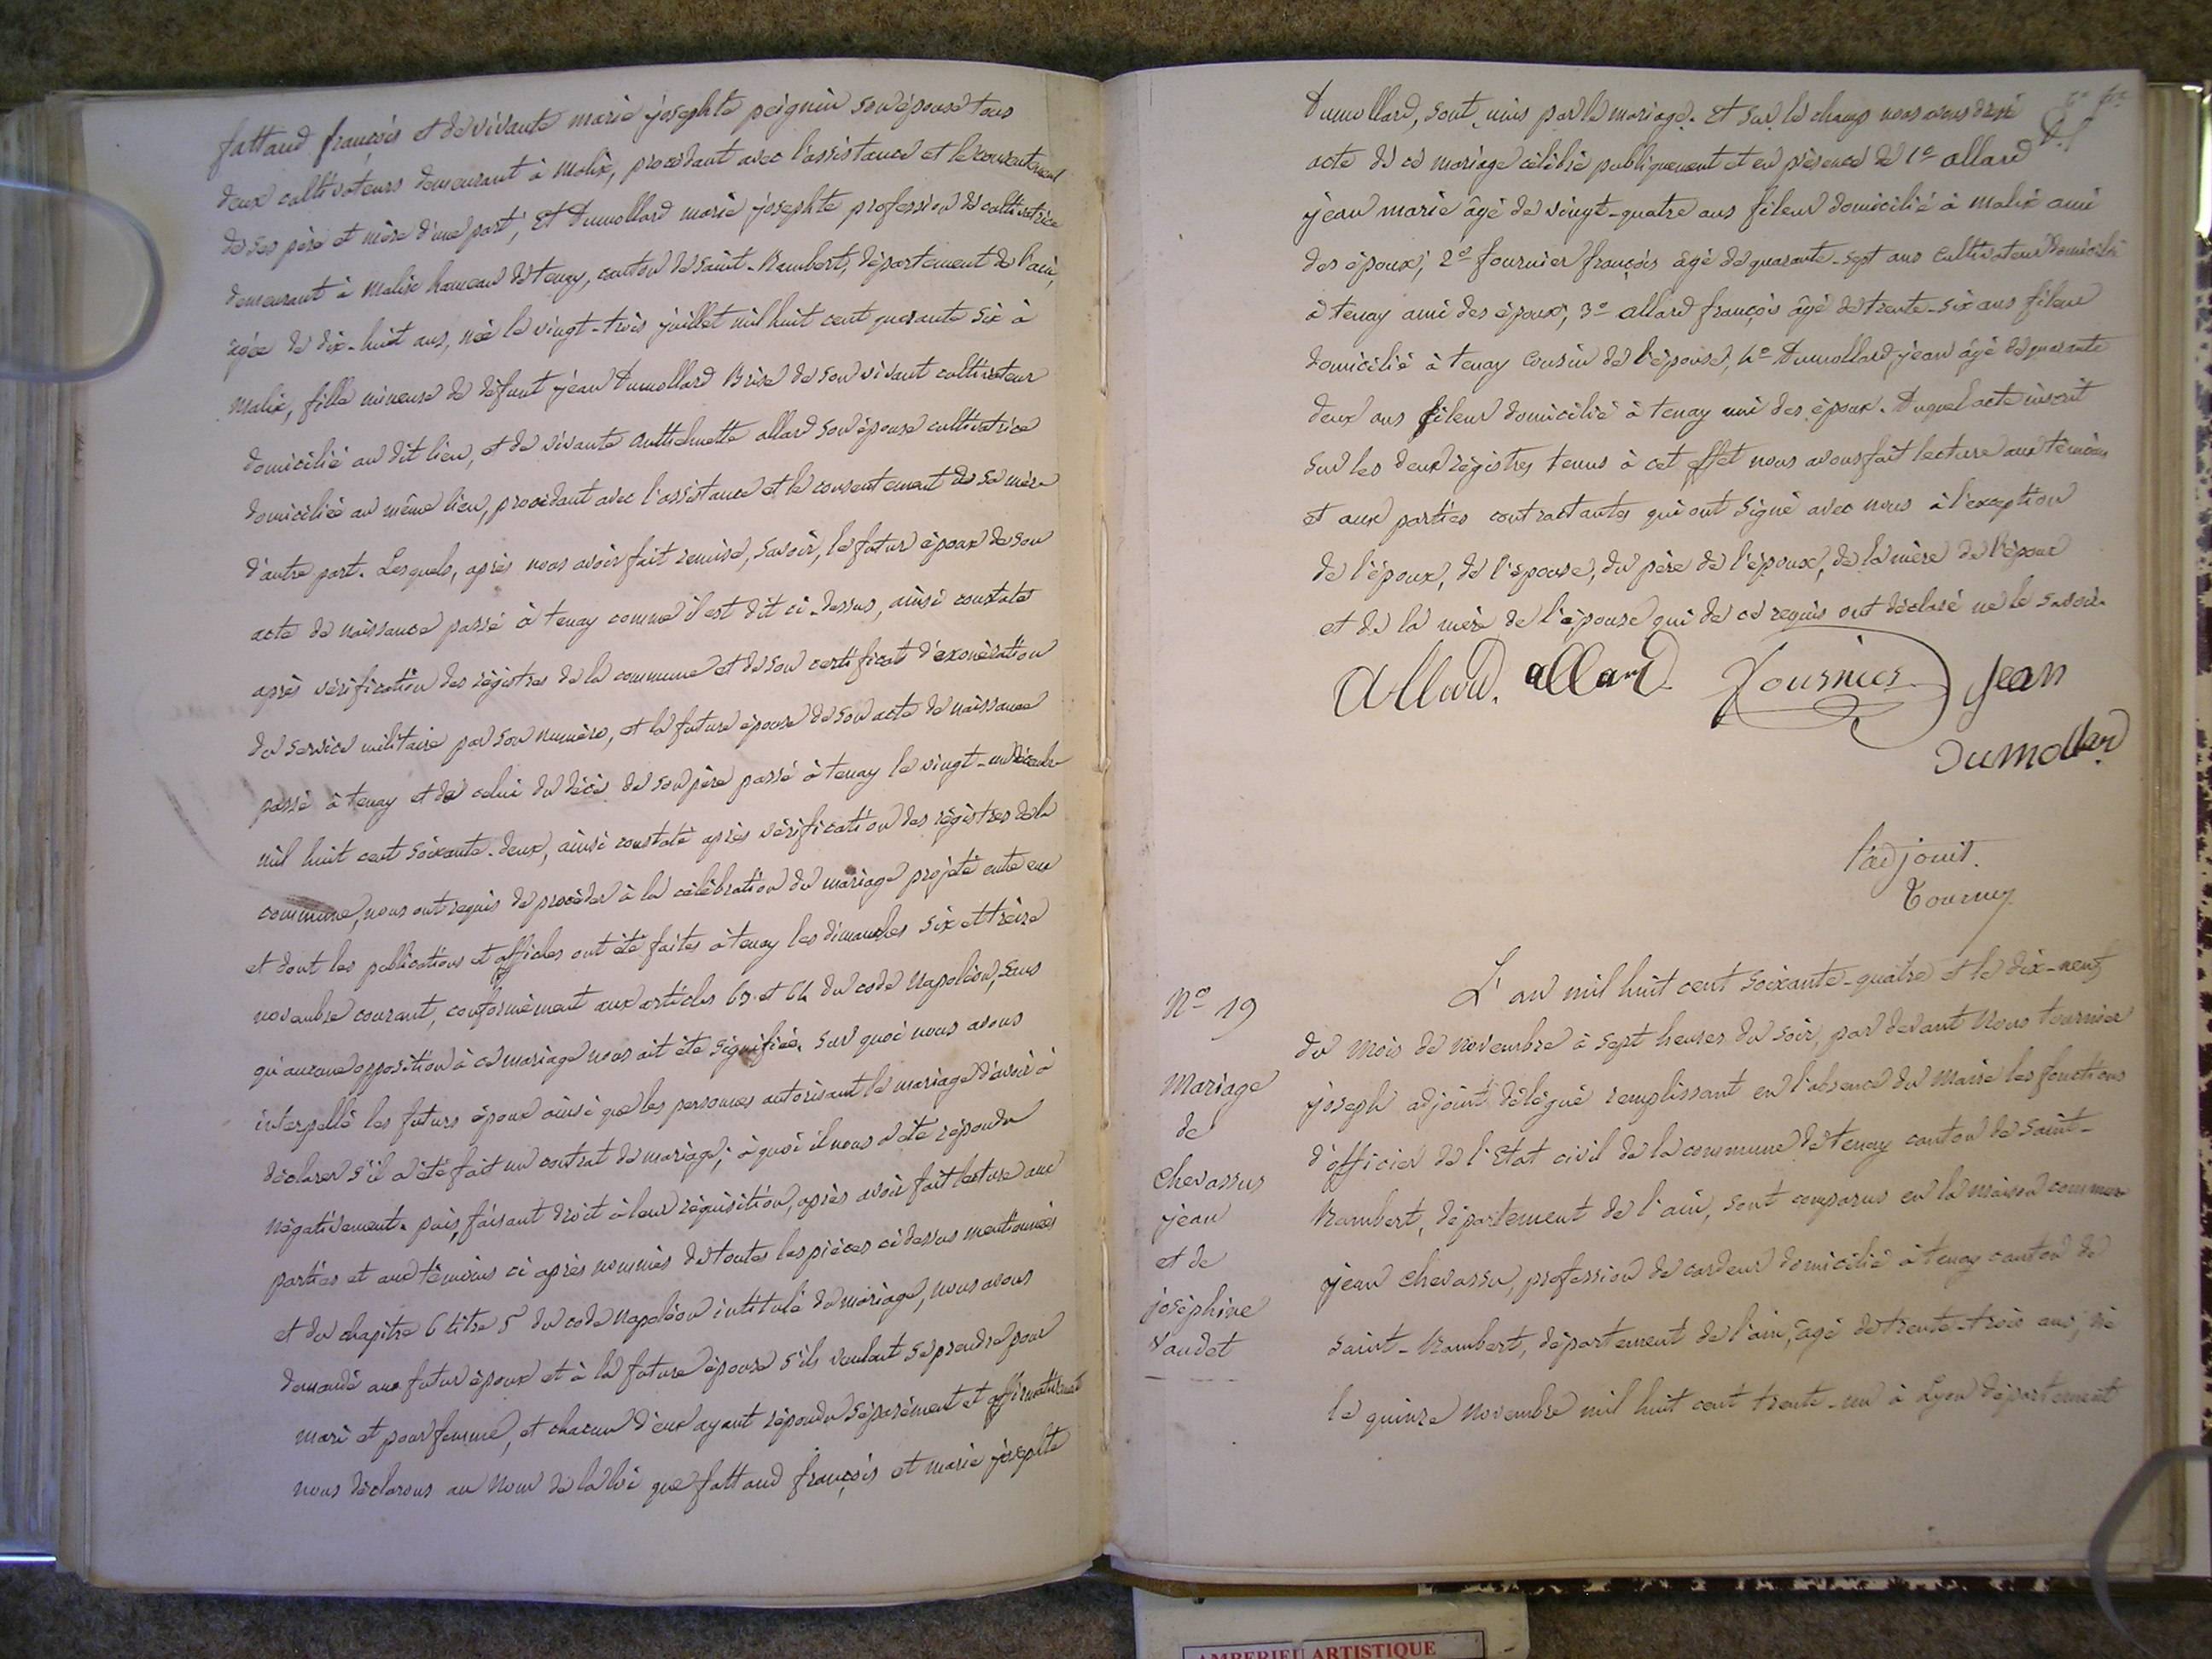 fattaud françois et de vivante marie josephte peignin son épouse tous
deux cultivateurs demeurant à Malix, procédant avec l'assistance et le consentement
de ses père et mère d'une part; Et Dumollard marie josephte profession de cultivatrice
demeurant à Malix hameau de tenay, canton de saint-Rambert, département de l'ain,
agée de dix-huit ans, née le vingt-trois juillet mil huit cent quarante six à
Malix, fille mineure de défunt jean Dumollard Brise de son vivant cultivateur
domicilié au dit lieu, et de vivante anthelmette allard son épouse cultivatrice
domiciliée au même lieu, procédant avec l'assistance et le consentement de sa mère
d'autre part. Lesquels, après nous avoir fait remise, savoir, le futur époux de son
acte de naissance passé à tenay comme il est dit ci-dessus, ainsi constaté
après vérification des régistres de la commune et de son certificat d'exonération
du service militaire par son numéro, et la future épouse de son acte de naissance
passé à tenay et de celui du décès de son père passé à tenay le vingt-un
mil huit cent soixante-deux, ainsi constaté après vérification des régistres de la
commune, nous ont requis de procéder à la célébration du mariage projeté entre eux
et dont les publications et affiches ont été faites à tenay les dimanches six et treize
novembre courant, conformément aux articles 63 et 64 du code Napoléon, sans
qu'aucune opposition à ce mariage nous ait été signifiée. Sur quoi nous avons
interpellé les futurs époux ainsi que les personnes autorisant le mariage d'avoir à
déclarer s'il a été fait un contrat de mariage; à quoi il nous a été répondu
négativement. puis, faisant droit à leur réquisition, après avoir fait lecture aux
parties et aux témoins ci après nommés de toutes les pièces ci dessus mentionnées
et du chapitre 6 titre 5 du code Napoléon intitulé du mariage, nous avons
demandé aux futur époux et à la future épouse s'ils veulent se prendre pour
mari et pour femme, et chacun d'eux ayant répondu séparément et affirmativement
nous déclarons au Nom de la loi que fattaud françois et marie josephte
Dumollard, sont unis par le mariage. Et sur le champ nous avons dressé
acte de ce mariage célébré publiquement et en présence de 1º allard
jean marie âgé de vingt-quatre ans fileur domicilié à malix ami
des époux; 2º fournier françois âgé de quarante-sept ans cultivateur domicilié
à tenay ami des époux; 3º allard françois âgé de trente-six ans fileur
domicilié à tenay cousin de l'épouse, 4º Dumollard jean âgé de quarante
deux ans fileur domicilié à tenay ami des époux. Duquel acte inscrit
sur les deux régistres tenus à cet effet nous avons fait lecture aux témoins
et aux parties contractantes qui ont signé avec nous à l'exception
de l'époux, de l'épouse, du père de l'époux, de la mère de l'époux
et de la mère de l'épouse qui de ce requis ont déclaré ne le savoir.
Allard. allard Fournier Jean
Dumollard
l'adjoint.
Nº 19
Mariage
de
Chevassus
jean
et de
joséphine
Vaudet
L'an mil huit cent soixante-quatre et le dix-neuf
du Mois de Novembre à sept heures du soir, par devant Nous tournier
joseph adjoint délégué remplissant en l'absence du Maire les fonctions
d'officier de l'Etat civil de la commune de tenay canton de saint-
Rambert, département de l'ain, sont comparus en la maison commune
jean Chevassu, profession de cardeur domicilié à tenay canton de
saint-Rambert, département de l'ain, âgé de trente-trois ans, né
le quinze Novembre mil huit cent trente-un à Lyon département
AMBERIEU ARTISTIQUE